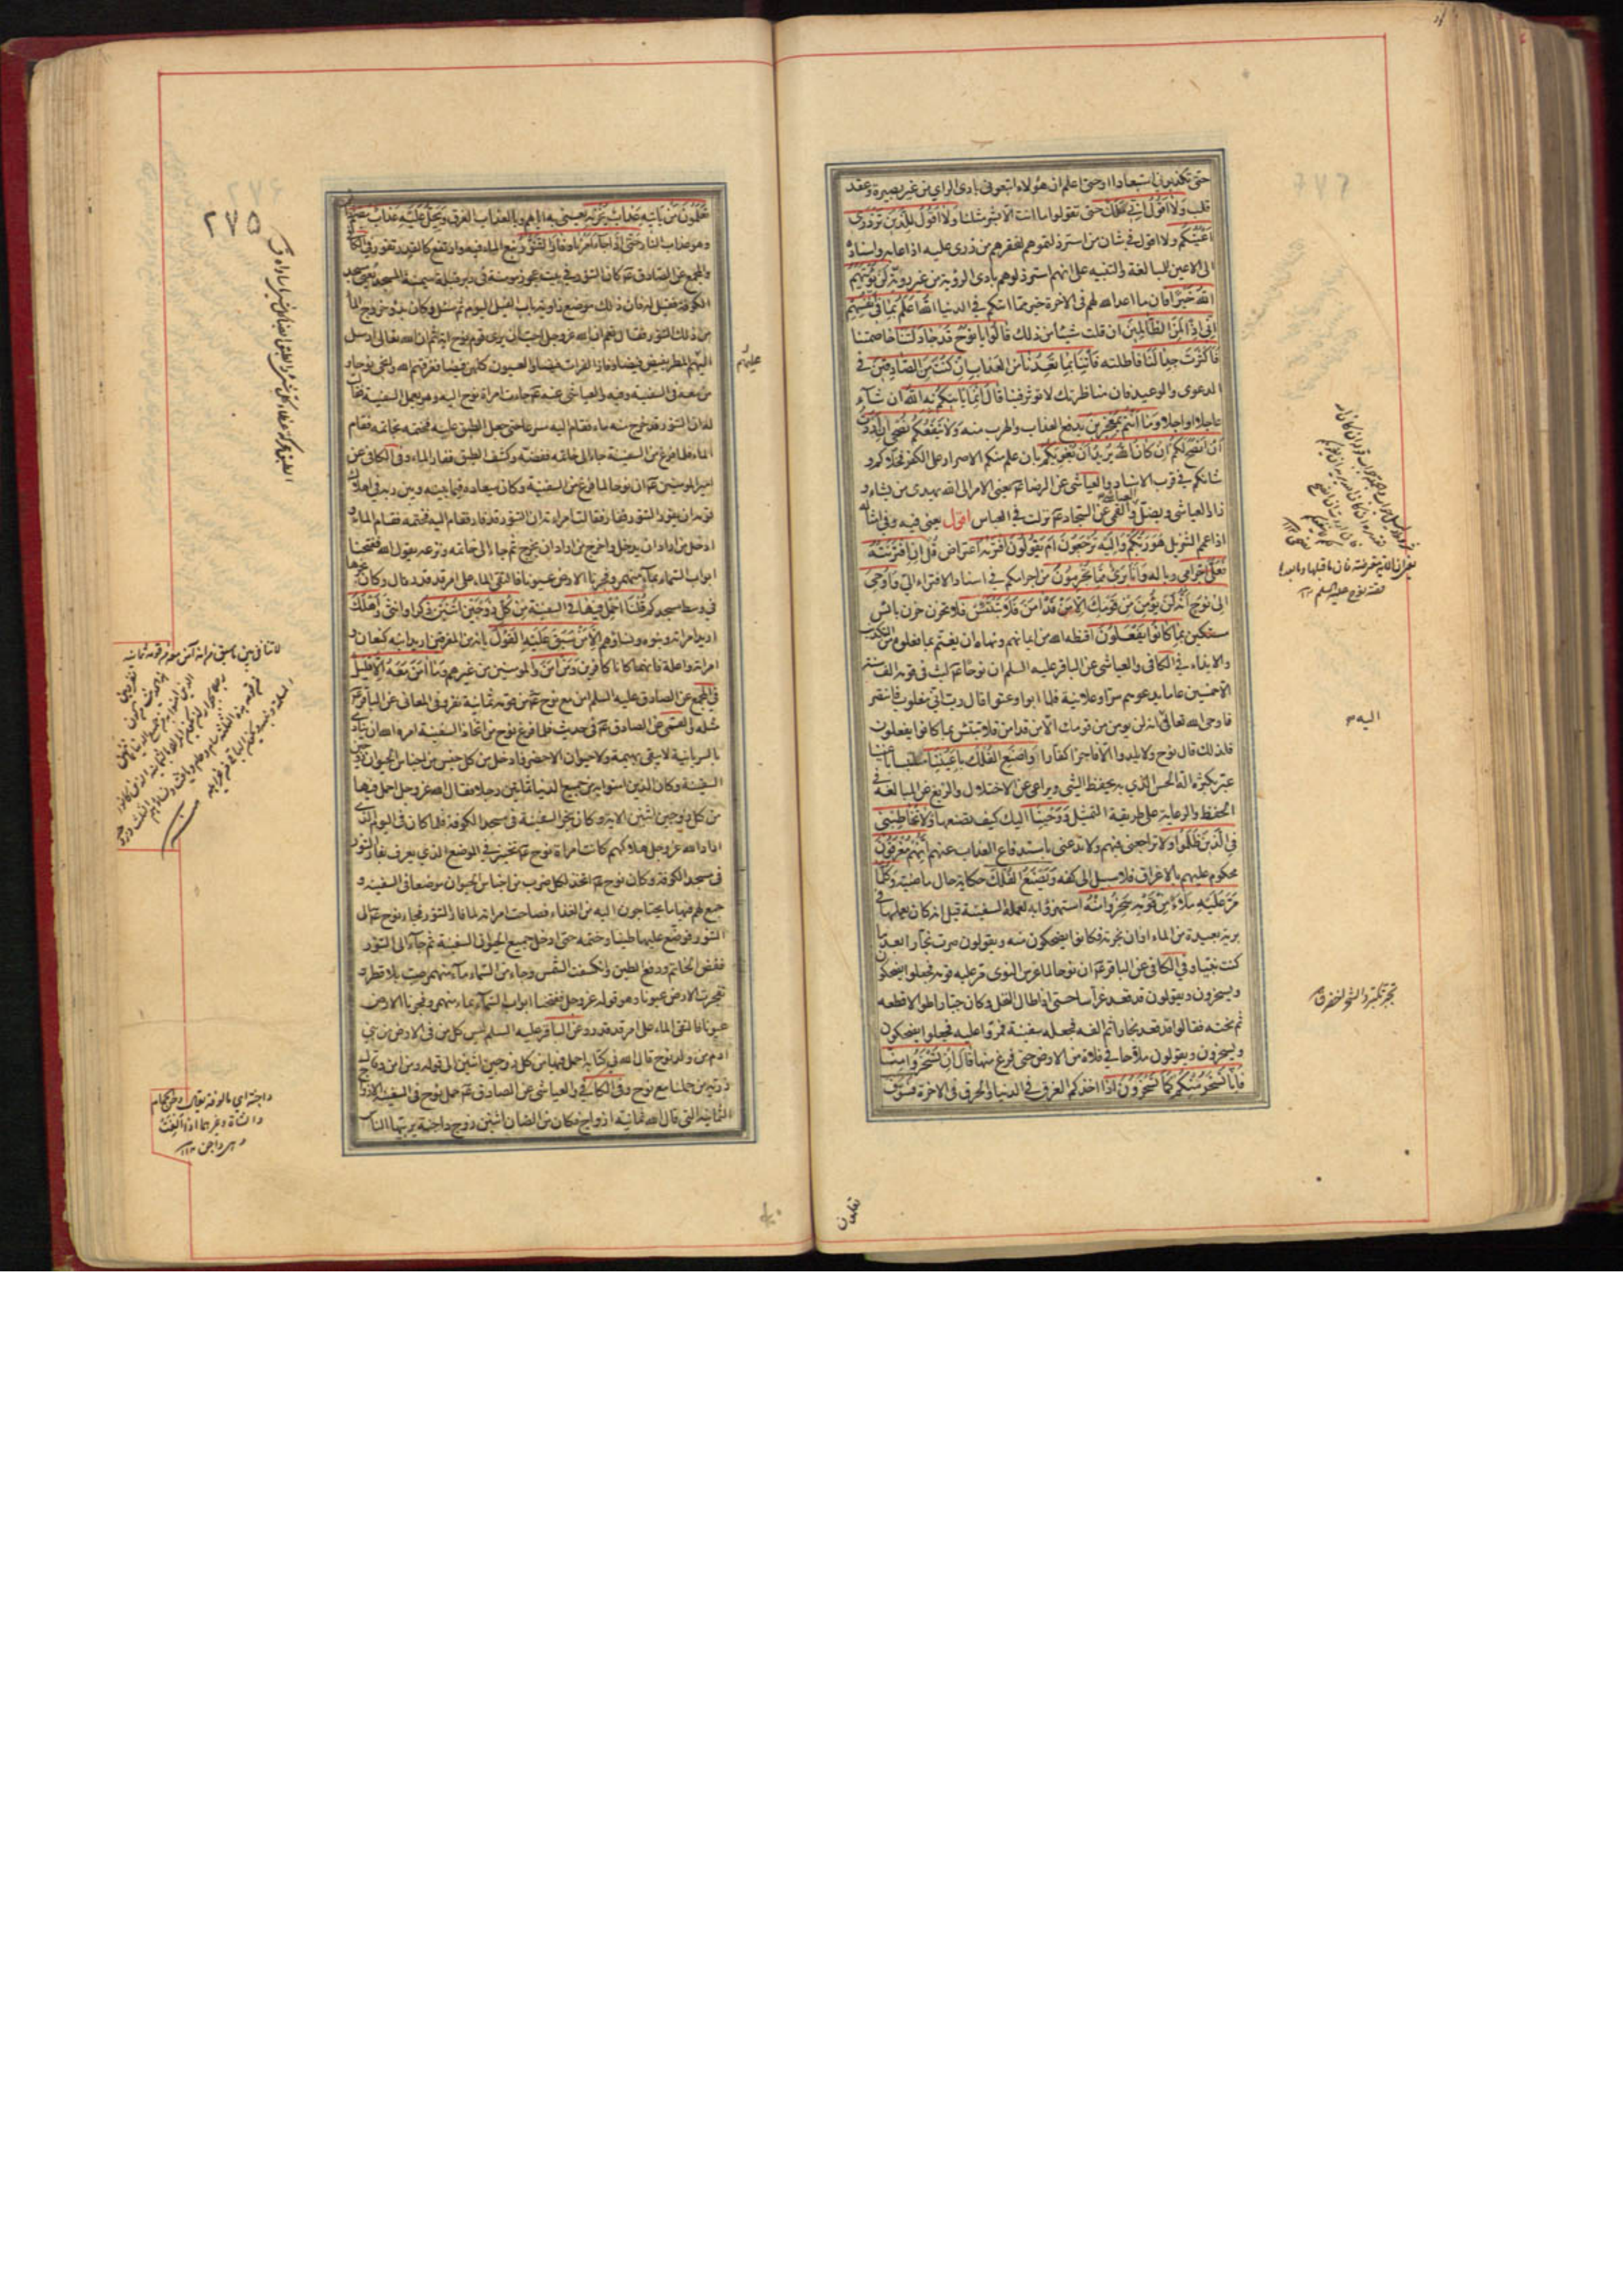 حتى تكذبوني استبعادا او حتى اعلم ان هؤلاء اتبعوني بادى الراي من غير بصيرة وعقد
قلب وَلا اَقُولُ اِنّي مَلَكٌ حتى تقولوا ما انت الا بشر مثلنا وَلا اَقُولُ لِلَّذينَ تَزْدَرى
اَعْيُنُكُمْ ولا اقول في شان من استرذلتموهم لفقرهم من زرى عليه اذا عابه واسناده
الى الاعين للمبالغة والتنبيه على انهم استرذلوهم بادى الرؤية من غير روية لَنْ يُؤْتِيَهُمُ
اللهُ خَيْرًا فان ما اعد الله لهم في الاخرة خير مما اتيكم في الدنيا اَللهُ اَعْلَمُ بِما في اَنْفُسِهِمْ
اِنّي اِذًا لَمِنَ الظّالِمينَ ان قلت شيئا من ذلك قالُوا يا نُوحُ قَدْ جادَلْتَنا خاصمتنا
فَاَكْثَرْتَ جِدالَنا فاطلته فَاْتِنا بِما تَعِدُنا من العذاب اِنْ كُنْتَ مِنَ الصّادِقينَ في
الدعوى والوعيد فان مناظرتك لا تؤثر فينا قالَ اِنَّما يَاْتيكُمْ بِهِ اللهُ اِنْ شاءَ
عاجلا او اجلا وَما اَنْتُمْ بِمُعْجِزينَ بدفع العذاب والهرب منه وَلا يَنْفَعُكُمْ نُصْحي اِنْ اَرَدْتُ
اَنْ اَنْصَحَ لَكُمْ اِنْ كانَ اللهُ يُريدُ اَنْ يُغْوِيَكُمْ بان علم منكم الاصرار على الكفر فخلاكم و
شانكم في قرب الاسناد والعياشي عن الرضا ع يعنى الامر الى الله يهدى من يشاء و
زاد العياشي ويضل والقمي عن السجاد ع نزلت في العباس اقول يعنى فيه وفي امثاله
هُوَ رَبُّكُمْ وَاِلَيْهِ تُرْجَعُونَ اَمْ يَقُولُونَ افْتَريهُ اعتراض قُلْ اِنِ افْتَرَيْتُهُ
فَعَلَيَّ اِجْرامي وباله وَاَنَا بَرئٌ مِمّا تُجْرِمُونَ من اجرامكم في اسناد الافتراء الي وَاُوحِيَ
اِلى نُوحٍ اَنَّهُ لَنْ يُؤْمِنَ مِنْ قَوْمِكَ اِلّا مَنْ قَدْ امَنَ فَلا تَبْتَئِسْ فلا تحزن حزن بائس
مستكين بِما كانُوا يَفْعَلُونَ اقنطه الله من ايمانهم ونهاه ان يغتم بما فعلوه من التكذيب
والايذاء في الكافي والعياشي عن الباقر عليه السلم ان نوحا ع لبث في قومه الف سنة
الا خمسين عاما يدعوهم سرا وعلانية فلما ابوا وعتوا قال رب اني مغلوب فانتصر
فاوحى الله تعالى انه لن يومن من قومك الا من قد امن فلا تبتئس بما كانوا يفعلون
فلذلك قال نوح ولا يلدوا الا فاجرا كفارا وَاصْنَعِ الْفُلْكَ بِاَعْيُنِنا متلبسا باعيننا
عبر بكثرة الة الحس الذي به يحفظ الشئ ويراعى عن الاختلال والزيغ عن المبالغة في
الحفظ والرعاية على طريقة التمثيل وَوَحْيِنا اليك كيف تصنعها وَلا تُخاطِبْني
في الَّذينَ ظَلَمُوا ولا تراجعني فيهم ولا تدعنى باستدفاع العذاب عنهم اِنَّهُمْ مُغْرَقُونَ
محكوم عليهم بالاغراق فلا سبيل الى كفه وَيَصْنَعُ الْفُلْكَ حكاية حال ماضية وَكُلَّما
مَرَّ عَلَيْهِ مَلَاٌ مِنْ قَوْمِهِ سَخِرُوا مِنْهُ استهزؤا به لعمله السفينة قيل انه كان يعملها في
برية بعيدة من الماء اوان عزته فكانوا يضحكون منه ويقولون صرت نجارا بعد ما
كنت نبيا وفي الكافي عن الباقر ع ان نوحا لما غرس النوى مر عليه قومه فجعلوا يضحكون
ويسخرون ويقولون قد قعد غراسا حتى اذا طال النخل وكان جبارا طوالا قطعه
ثم نحته فقالوا قد قعد نجارا ثم الفه فجعله سفينة فمروا عليه فجعلوا يضحكون
ويسخرون ويقولون قد قعد ملاحا في فلاة من الارض حتى فرغ منها قالَ اِنْ تَسْخَرُوا مِنّا
فَاِنّا نَسْخَرُ مِنْكُمْ كَما تَسْخَرُونَ اذا اخذكم الغرق في الدنيا والحرق في الاخرة فَسَوْفَ
اليه م
تعلمون
٢٧٥
تَعْلَمُونَ مَنْ يَاْتيهِ عَذابٌ يُخْزيهِ يعنى به اياهم وبالعذاب الغرق وَيَحِلُّ عَلَيْهِ عَذابٌ مُقيمٌ
وهو عذاب النار حَتّى اِذا جاءَ اَمْرُنا وَفارَ التَّنُّورُ نبع الماء فيه وارتفع كالقدر تفور في الكافي
والمجمع عن الصادق ع كان التنور في بيت عجوز مومنة في دبر قبلة ميمنة المسجد يعنى مسجد
الكوفة فقيل له فان ذلك موضع زاوية باب الفيل اليوم ثم سئل وكان بدو خروج الماء
من ذلك التنور فقال نعم ان الله عز وجل احب ان يرى قوم نوح اية ثم ان الله تعالى ارسل
عليهم المطر يفيض فيضا وفاز الفرات فيضا والعيون كلهن فيضا فغرقهم الله وانجى نوحا و
من معه في السفينة وفيه والعياشي عنه ع جاءت امراة نوح اليه وهو يعمل السفينة فقالت
له ان التنور قد خرج منه ماء فقام اليه مسرعا حتى جعل الطبق عليه فختمه بخاتمه فقام
الماء فلما فرغ من السفينة جاء الى خاتمه ففضه وكشف الطبق ففار الماء وفي الكافي عن
امير المومنين ع ان نوحا لما فرغ من السفينة وكان ميعاده فيما بينه وبين ربه في اهلاك
قومه ان يفور التنور ففار فقالت امراته ان التنور قد فار فقام اليه فختمه فقام الماء و
ادخل من اراد ان يدخل واخرج من اراد ان يخرج ثم جاء الى خاتمه ونزعه يقول الله ففتحنا
ابواب السماء بماء منهمر وفجرنا الارض عيونا فالتقى الماء على امر قد قدر قال وكان نجرها
في وسط مسجدكم قُلْنَا احْمِلْ فيها في السفينة مِنْ كُلٍّ زَوْجَيْنِ اثْنَيْنِ ذكرا وانثى وَاَهْلَكَ
اريد امراته وبنوه ونساؤهم اِلّا مَنْ سَبَقَ عَلَيْهِ الْقَوْلُ بانه من المغرقين اريد ابنه كنعان و
امراته واعلة فانهما كانا كافرين وَمَنْ امَنَ والمومنين من غيرهم وَما امَنَ مَعَهُ اِلّا قَليلٌ
في المجمع عن الصادق عليه السلم امن مع نوح ع من قومه ثمانية نفر وفي المعاني عن الباقر ع
مثله والقمي عن الصادق ع في حديث فلما فرغ نوح من اتخاذ السفينة امره الله ان ينادى
بالسريانية لا يبقى بهيمة ولا حيوان الا حضر فادخل من كل جنس من اجناس الحيوان زوجين
السفينة وكان الذين امنوا به من جميع الدنيا ثمانين رجلا فقال الله عز وجل احمل فيها
من كل زوجين اثنين الاية وكان نجر السفينة في مسجد الكوفة فلما كان في اليوم الذى
اراد الله عز وجل هلاكهم كانت امراة نوح ع تخبز في الموضع الذي يعرف بفار التنور
في مسجد الكوفة وكان نوح ع اتخذ لكل ضرب من اجناس الحيوان موضعا في السفينة و
جمع لهم فيها ما يحتاجون اليه من الغذاء فصاحت امراته لما فار التنور فجاء نوح ع الى
التنور فوضع عليها طينا وختمه حتى ادخل جميع الحيوان السفينة ثم جاء الى التنور
ففض الخاتم ورفع الطين وانكسفت الشمس وجاء من السماء ماء منهمر صب بلا قطر و
تفجرت الارض عيونا وهو قوله عز وجل ففتحنا ابواب السماء بماء منهمر وفجرنا الارض
عيونا فالتقى الماء على امر قد قدر وعن الباقر عليه السلم ليس كل من في الارض من بني
ادم من ولد نوح قال الله في كتابه احمل فيها من كل زوجين اثنين الى قوله ومن امن وقال
ذرية من حملنا مع نوح وفي الكافي والعياشي عن الصادق ع حمل نوح في السفينة الازواج
الثمانية التي قال الله ثمانية ازواج فكان من الضان اثنين زوج داجنة يربيها الناس
عليهم